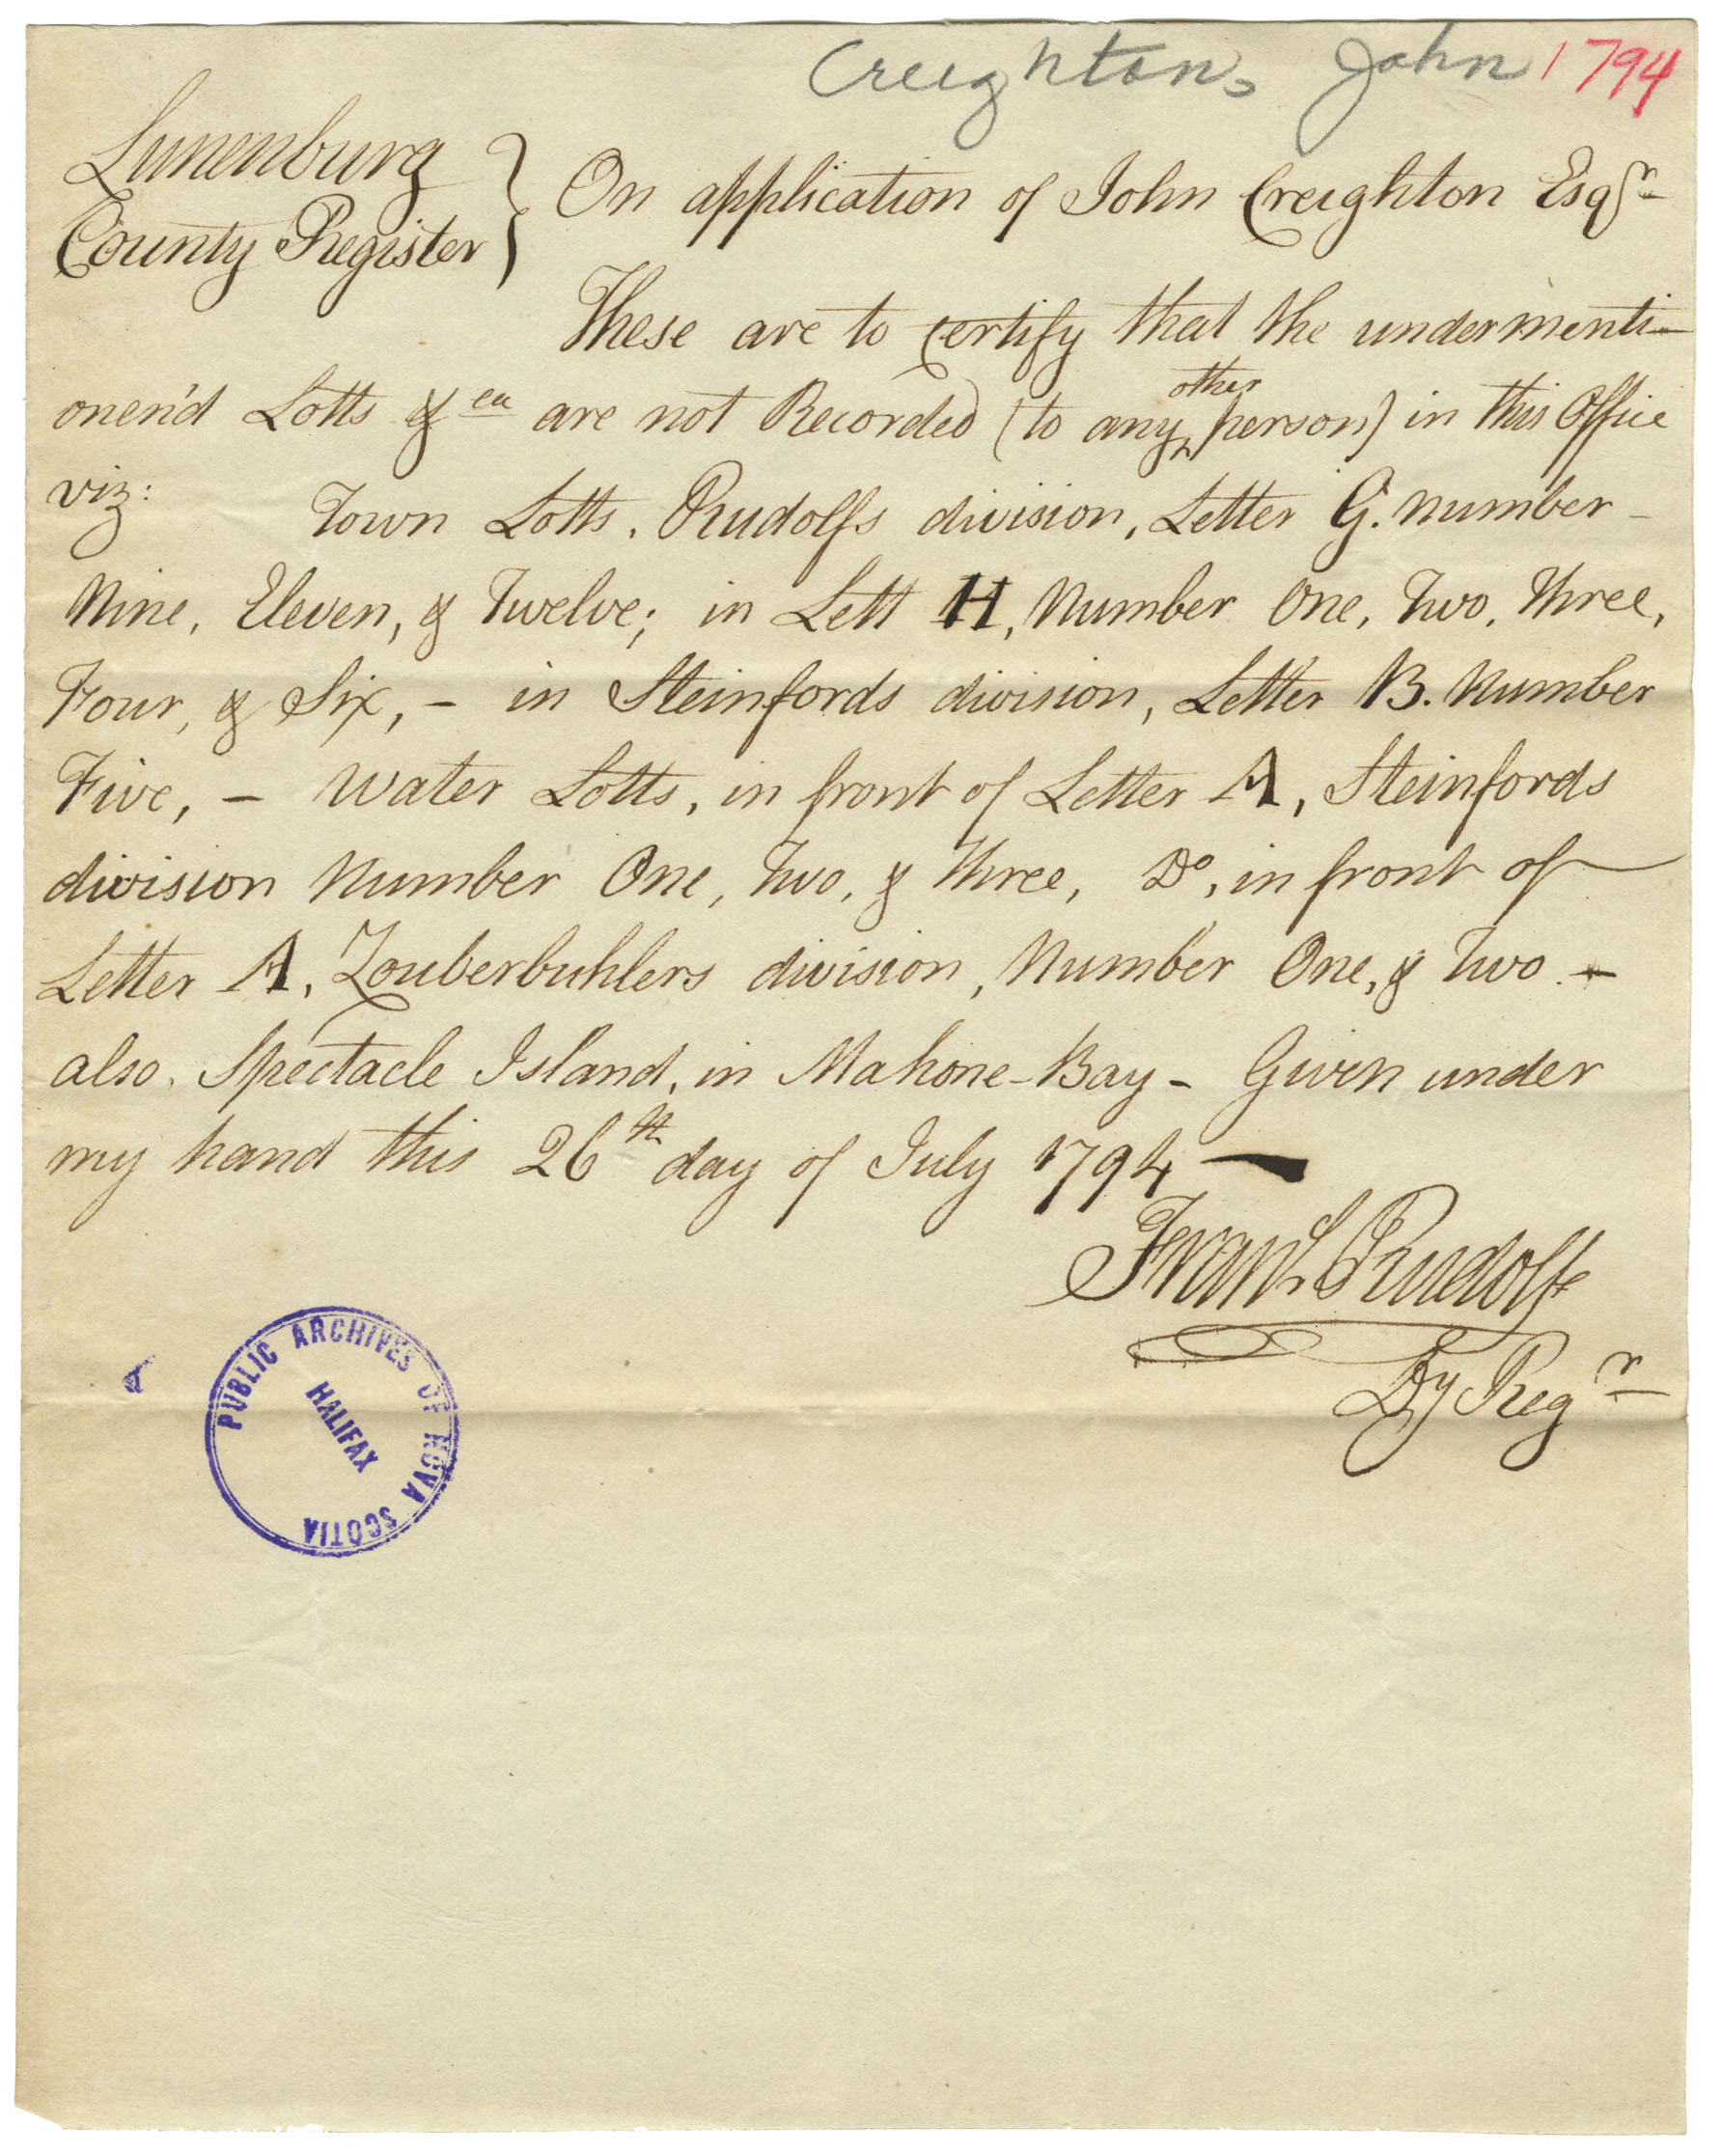 Creighton, John 1794
Lunenburg
County Register } On application of John Creighton Esqr
These are to certify that the undermenti-
onen'd Lotts &ca are not Recorded (to any ^other person) in this Office
viz: Town Lotts, Rudolfs division, Letter G. Number -
Nine, Eleven, & Twelve; in Lett H, Number One, Two, Three,
Four, & Six, - in Steinfords division, Letter B. Number
Five, - Water Lotts, in front of Letter A, Steinfords
division Number One, Two, & Three, Do, in front of
Letter A, Zouberbuhlers division, Number One, & Two. -
also, Spectacle Island, in Mahone-Bay - Given under
my hand this 26th day of July 1794 -
Frans Rudolf
Dy Regr
PUBLIC ARCHIVES OF NOVA SCOTIA
HALIFAX